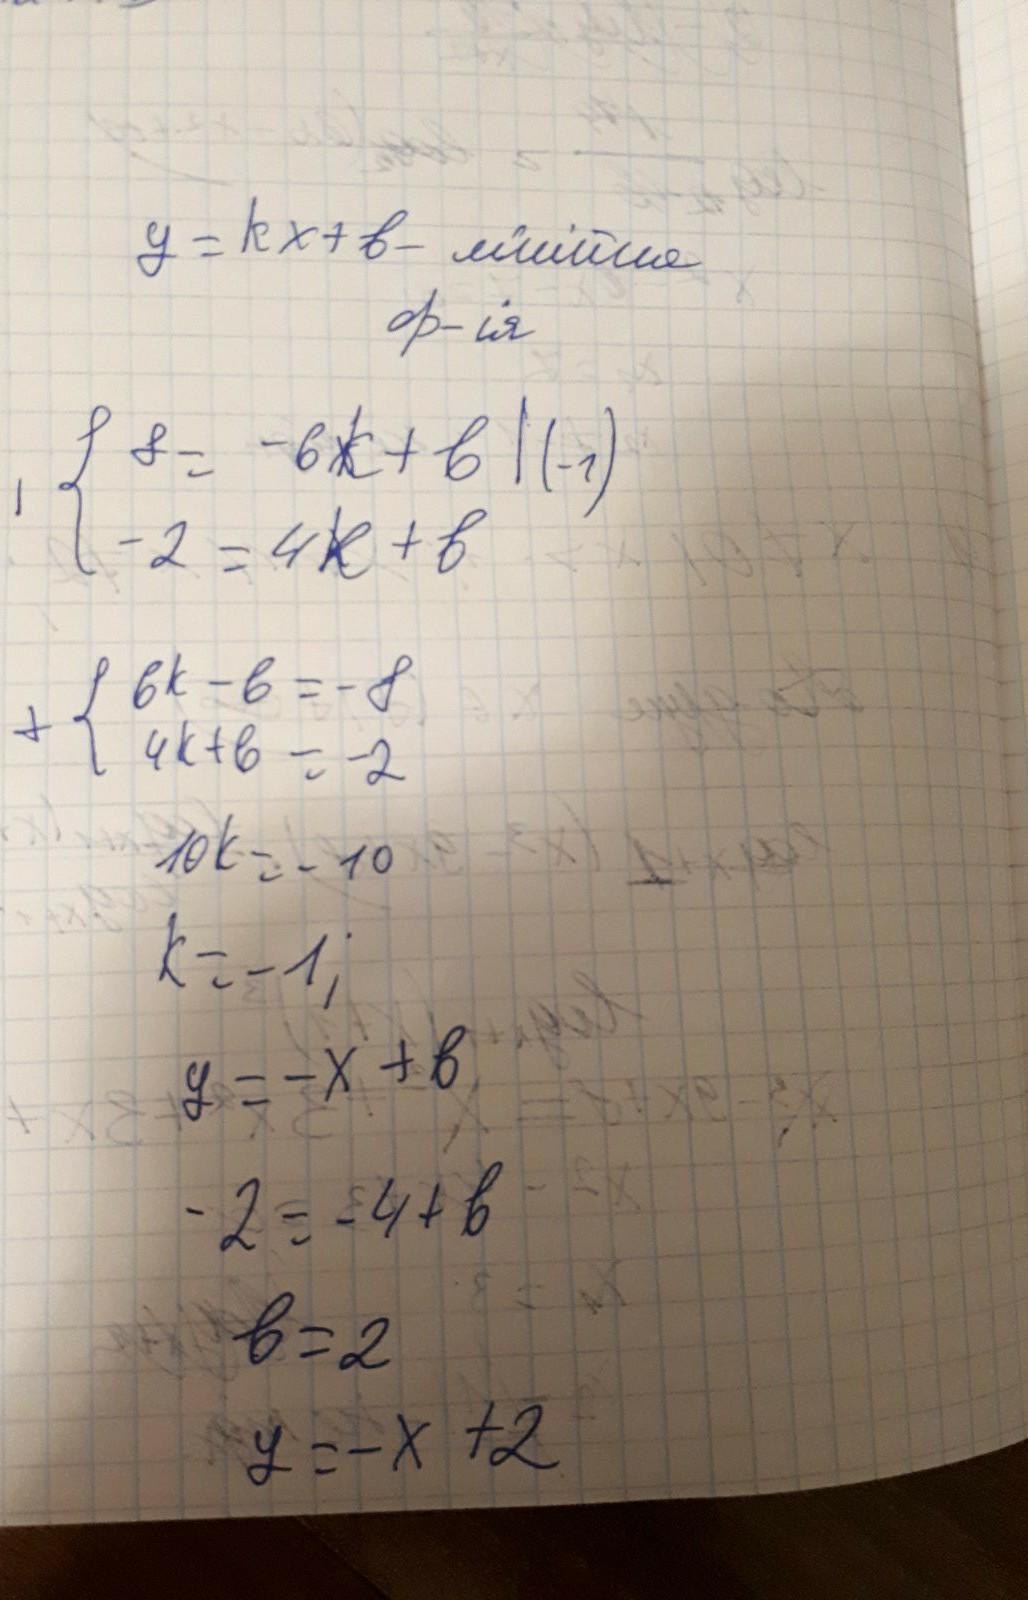 y = kx + b - лінійна
ф-ія
8 = -6k + b | (-1)
-2 = 4k + b
+ 6k - b = -8
4k + b = -2
10k = -10
k = -1;
y = -x + b
-2 = -4 + b
b = 2
y = -x + 2